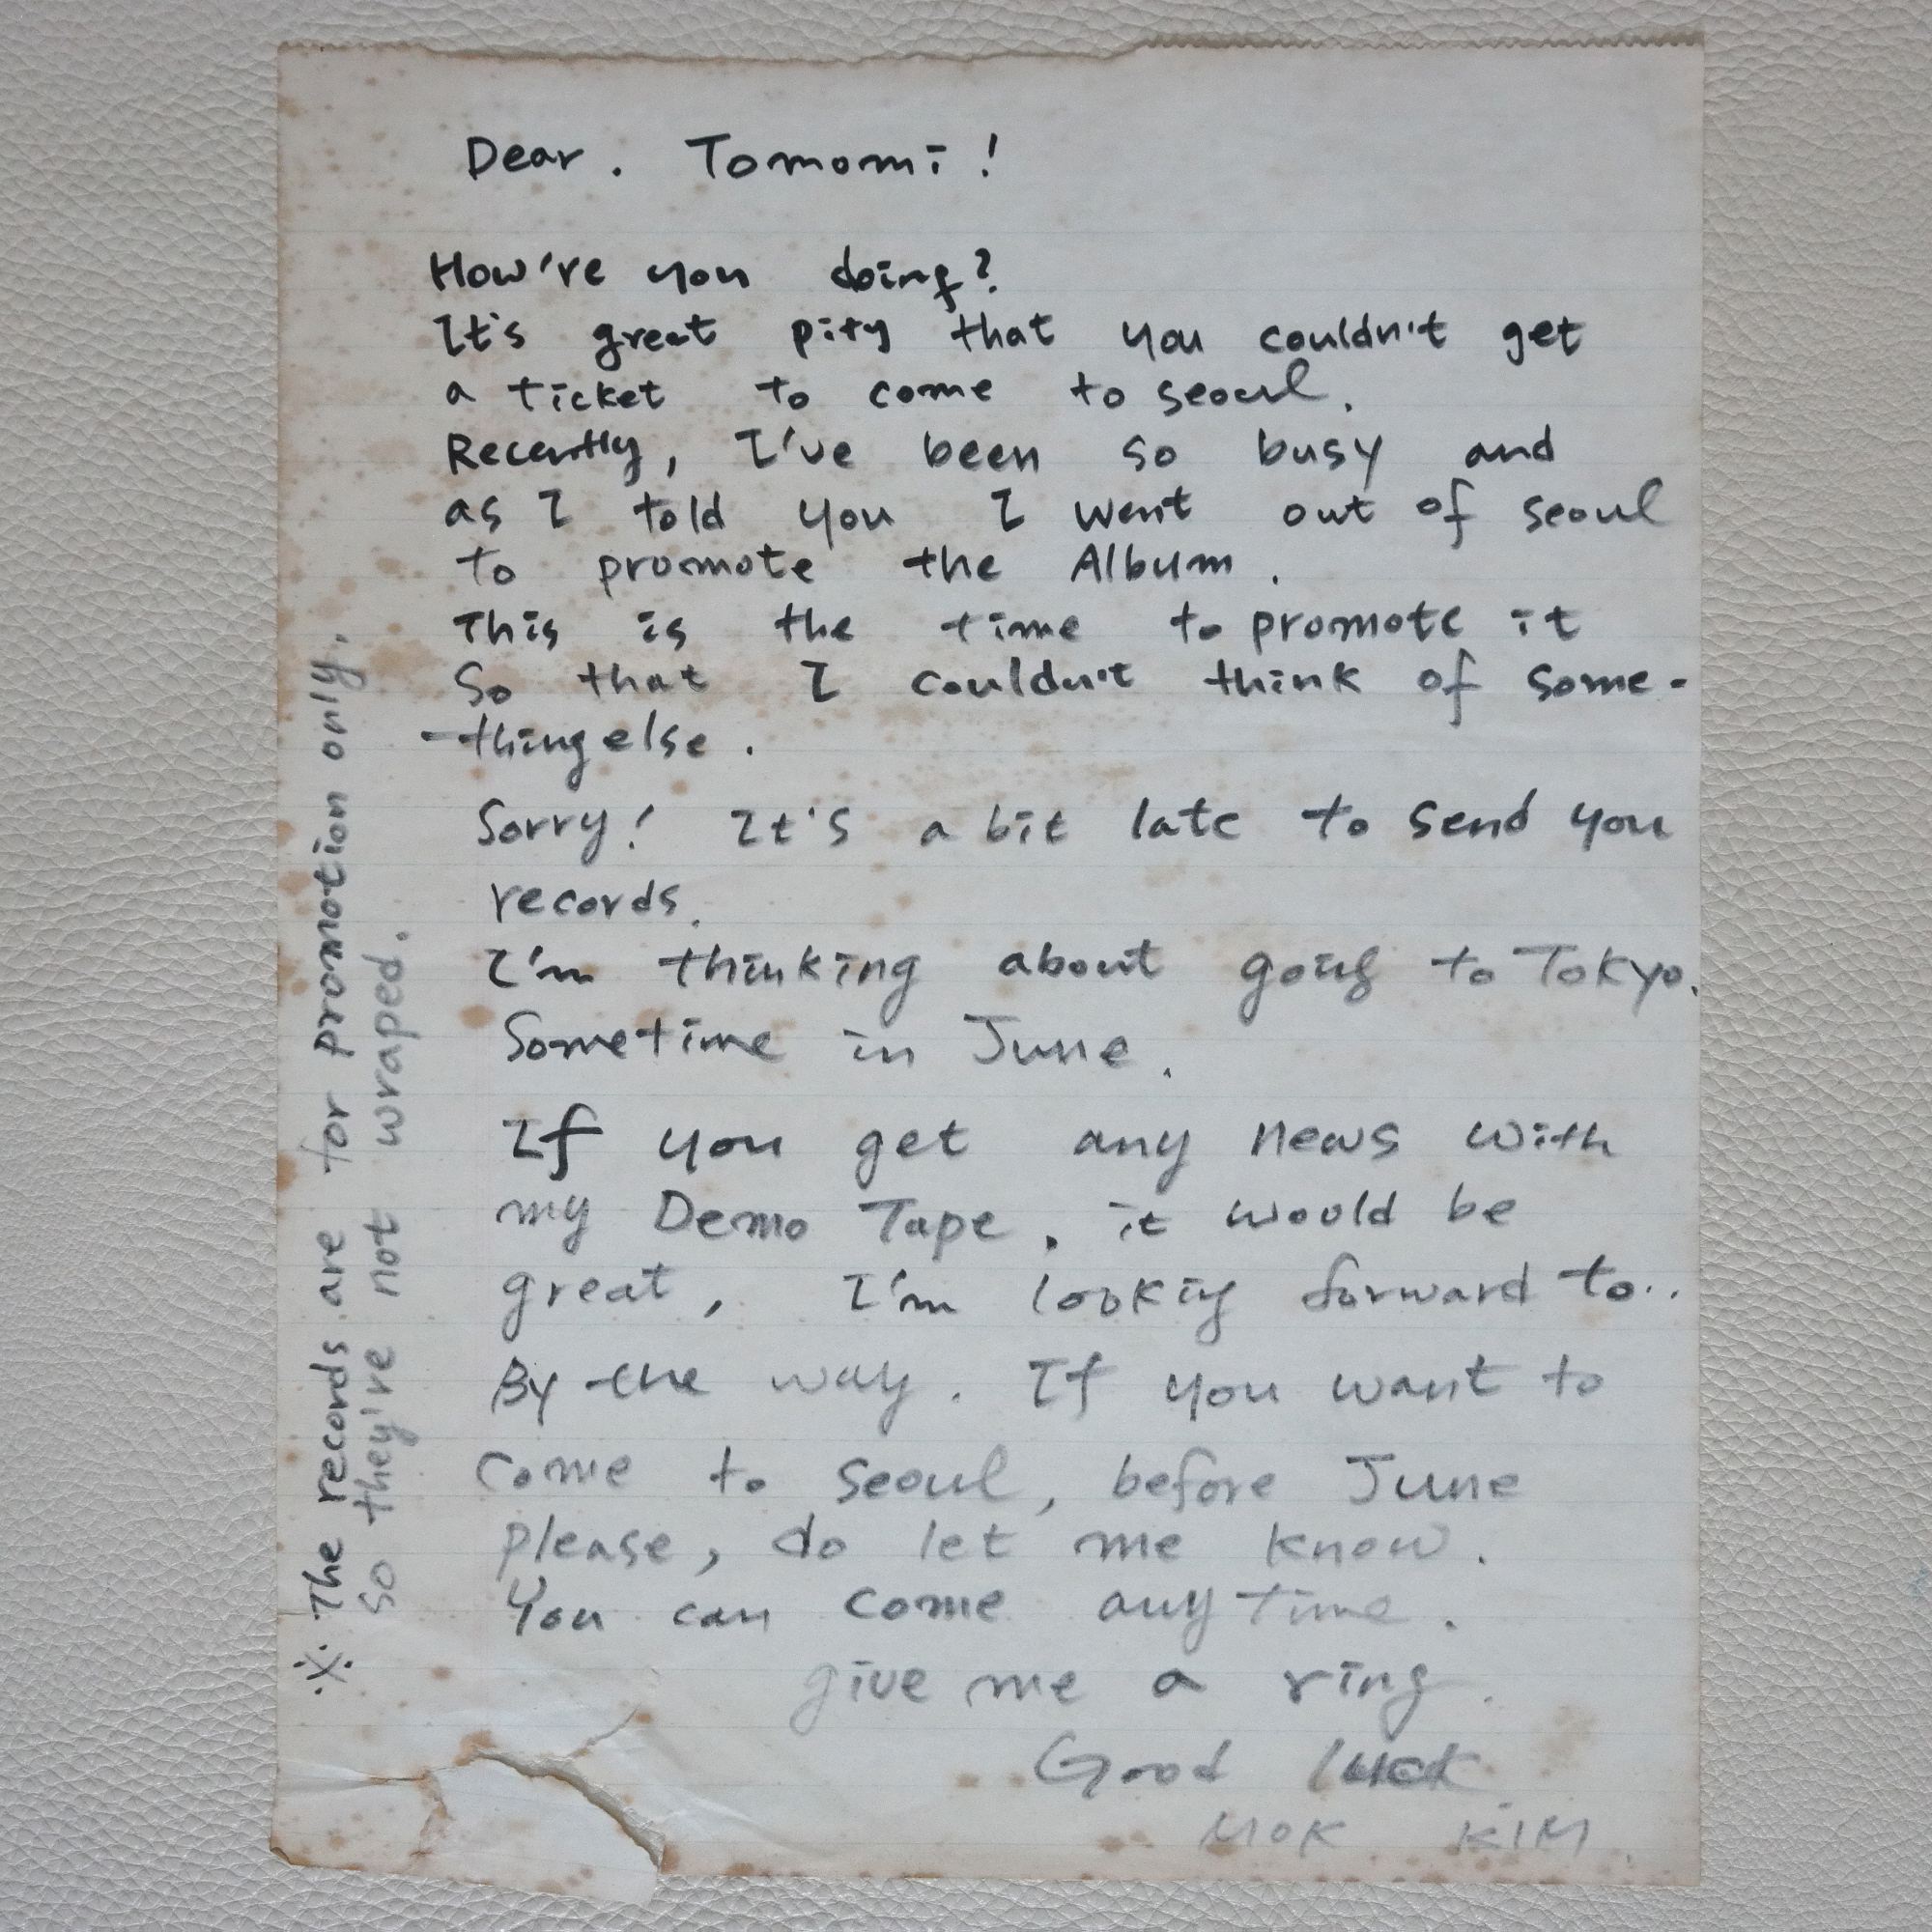 Dear. Tomomi!
How're you doing?
It's great pity that you couldn't get
a ticket to come to seoul.
Recently, I've been so busy and
as I told you I went out of seoul
to promote the Album.
This is the time to promote it
So that I couldn't think of some-
-thing else.
Sorry! It's a bit late to send you
records.
I'm thinking about going to Tokyo.
Sometime in June.
If you get any news with
my Demo Tape. it would be
great, I'm looking forward to..
By the way. If you want to
come to seoul, before June
please, do let me know.
You can come anytime.
give me a ring.
Good luck.
MOK KIM
※ The records are for promotion only.
so they're not wraped.